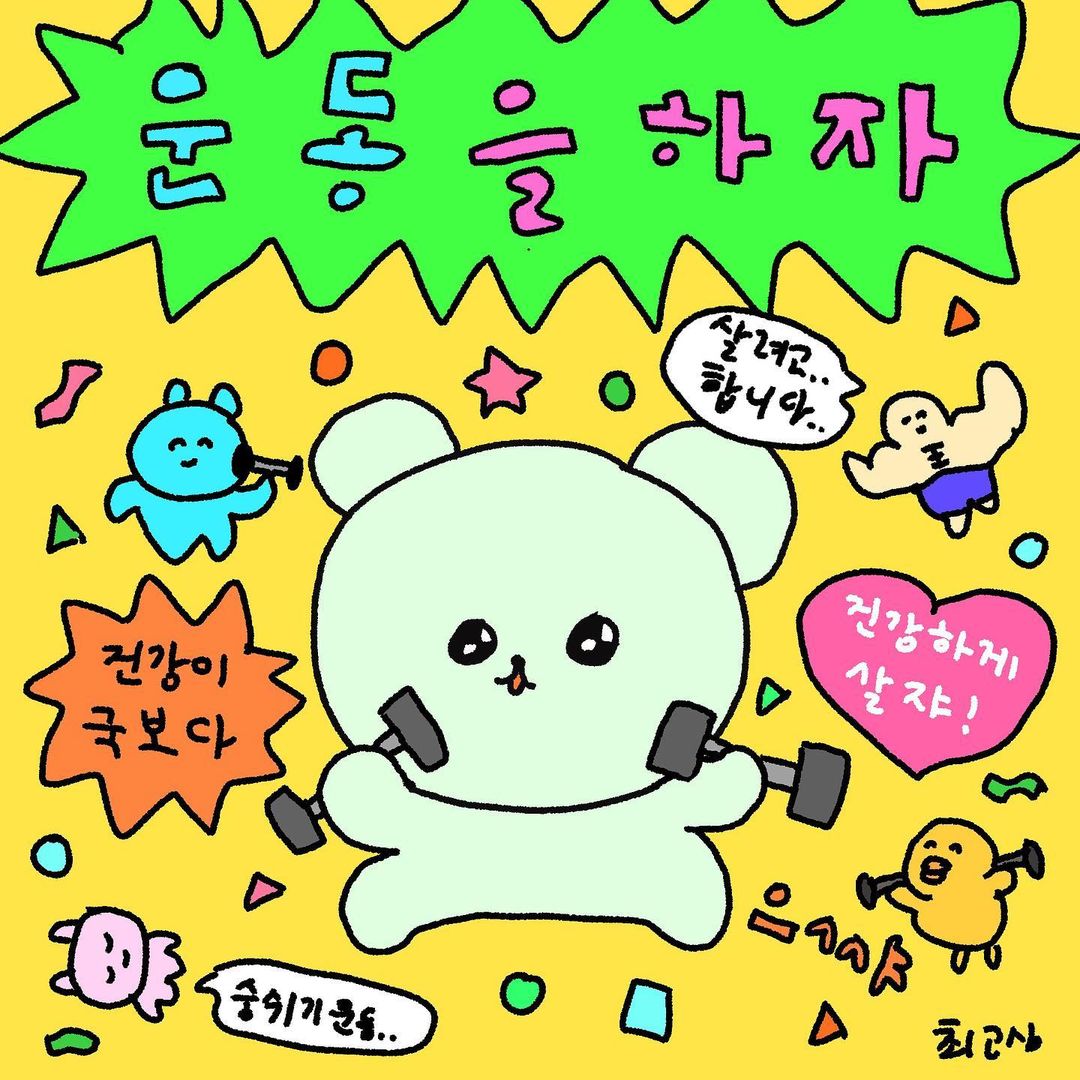 운동을하자
살려고..
합니다..
王
건강이
국보다
건강하게
살쟈!
으ㄱㄱ쟈
숨쉬기운동..
최고심